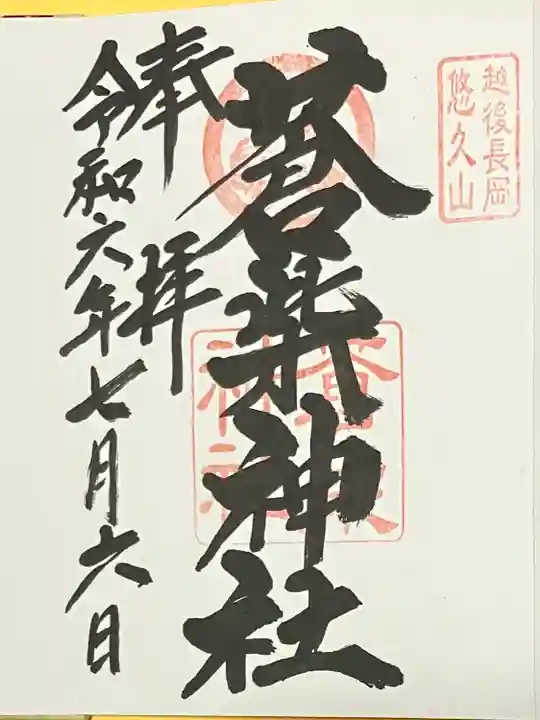 越後長岡
悠久山
蒼柴神社
奉拝
令和六年七月六日